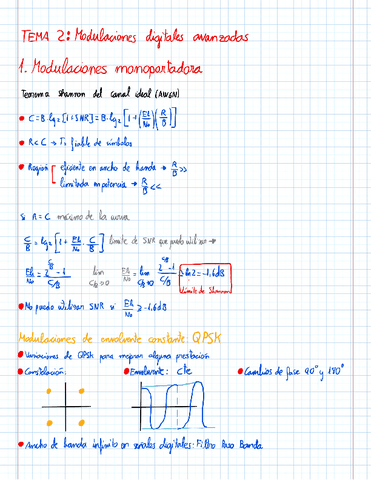 TEMA 2: Modulaciones digitales avanzadas
1. Modulaciones monoportadora
Teorema shannon del canal ideal (AWGN)
• C = B·log2[1+SNR] = B·log2[1+(Eb/No)(R/B)]
• R<C → Tx fiable de símbolos
• Región [ eficiente en ancho de banda → R/B >>
limitada en potencia → R/B <<
Si R = C máximo de la
C/B = log2[1 + Eb/No · C/B] Límite de SNR que puedo utilizar →
Eb/No = (2^(C/B) - 1)/(C/B) lim C/B→0 Eb/No = lim C/B→0 (2^(C/B) - 1)/(C/B) = ln2 = -1,6dB
Límite de Shannon
• No puedo utilizar SNR si Eb/No ≥ -1.6dB
Modulaciones de envolvente constante: QPSK
• Variaciones de QPSK para mejorar alguna prestación
• Constelación: • Envolvente: cte • Cambios de fase 90° y 180°
• Ancho de banda infinito en señales digitales: Filtro Paso Banda